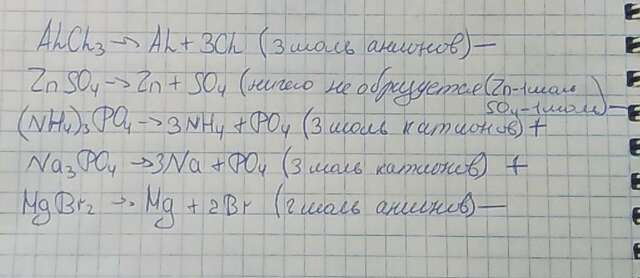 AlCl₃ → Al + 3Cl (3 моль анионов) —
ZnSO₄ → Zn + SO₄ (ничего не образуется (Zn-1моль
SO₄-1моль) —
(NH₄)₃PO₄ → 3NH₄ + PO₄ (3 моль катионов) +
Na₃PO₄ → 3Na + PO₄ (3 моль катионов) +
MgBr₂ → Mg + 2Br (2 моль анионов) —